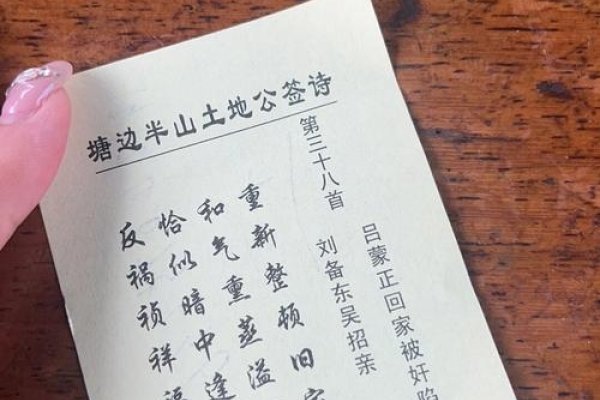 塘边半山土地公签诗
吕蒙正回家被奸陷
第三十八首 刘备东吴招亲
重新整顿旧家
和气熏蒸溢
恰似暗中逢
反祸祯祥